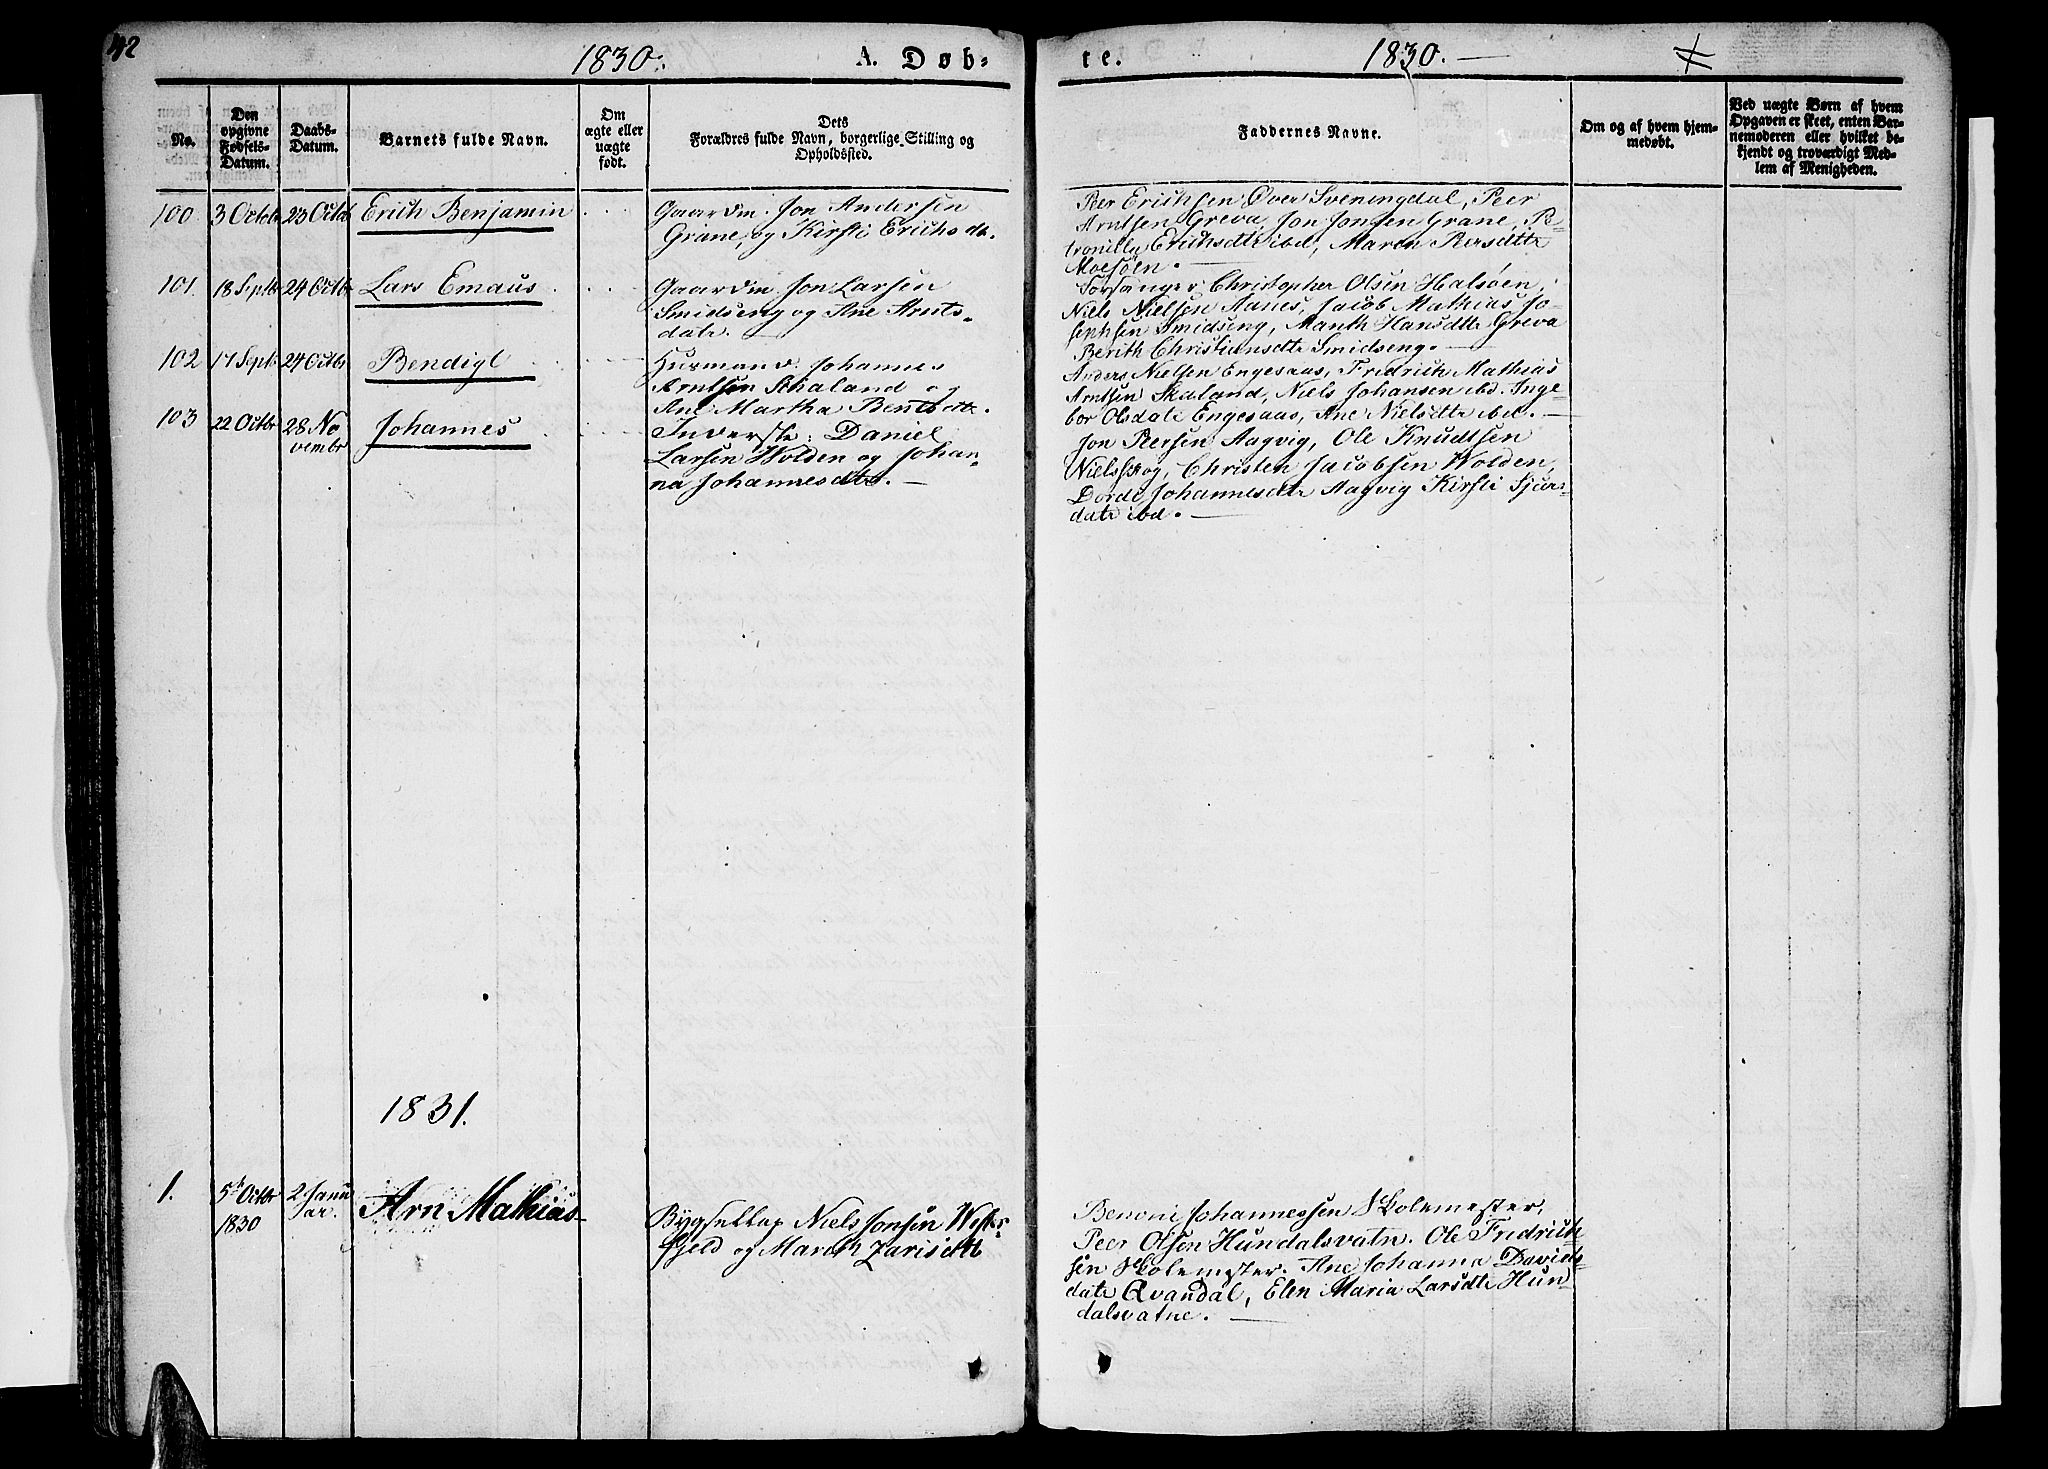 42
1830.
A. Døb-
te.
1830. —
No.
Den
opgivne
Fødsels-
Datum.
Daabs-
Datum.
Barnets fulde Navn.
Om
ægte eller
uægte
født.
Dets
Forældres fulde Navn, borgerlige Stilling og
Opholdssted.
Faddernes Navne.
Om og af hvem hjem-
medøbt.
Ved uægte Børn af hvem
Opgaven er skeet, enten Bar-
nemoderen eller hvilket be-
kjendt og troværdigt Med-
lem af Menigheden.
100. 3 Octobr 23 Octob Erich Benjamin
Gaardm. Jon Andersen
Grane, og Kirsti Erichsdtr.
Per Erichsen Over Sveningdal, Peer
Arntsen Greva, Jon Jonsen Grane, Pe-
tronilla Erichsdtr ibd, Maren Persdttr
Moesøen.
101. 18 Septbr 24 Octbr Lars Emaus
Gaardm. Jon Larsen
Smidseng og Ane Arnts-
datr.
Forsanger Christopher Olsen Halsøen,
Niels Nielsen Aanes, Jacob Mathias Jo-
sephsen Smidseng, Manth Hansdtr Greva
Berith Christiansdtr Smidseng. —
102 17 Septbr 24 Octbr Bendigt
Husmand. Johannes
Arntsen Skaland og
Ane Martha Bentsdtr.
Anders Nielsen Engesaas, Fridrich Mathias
Arntsen Skaland, Niels Johansen ibd. Inge-
bor Olsdatr Engesaas, Ane Nielsdtr ibd. —
103 22 Octbr 28 No
vembr Johannes
Inderste: Daniel
Larsen Wolden og Johan-
na Johannesdtr. —
Jon Peersen Aagvig, Ole Knudtsen
Nielsskog, Christen Jacobsen Wolden,
Dorde Johannesdtr Aagvig Kirsti Sjurs-
datr ibd. —
1831.
1. 5te Octbr
1830
2 Janu
ar.
Arn Mathias
Bygselkap Niels Jonsen Wester-
fjeld og Mareth Zarisdtr
Benoni Johannessen Skolemester,
Peer Olsen Hundalsvatn. Ole Fridrich-
sen Skolemester. Ane Johanna Davids-
datr Qvandal, Elen Maria Larsdtr Hun
dalsvatne. —